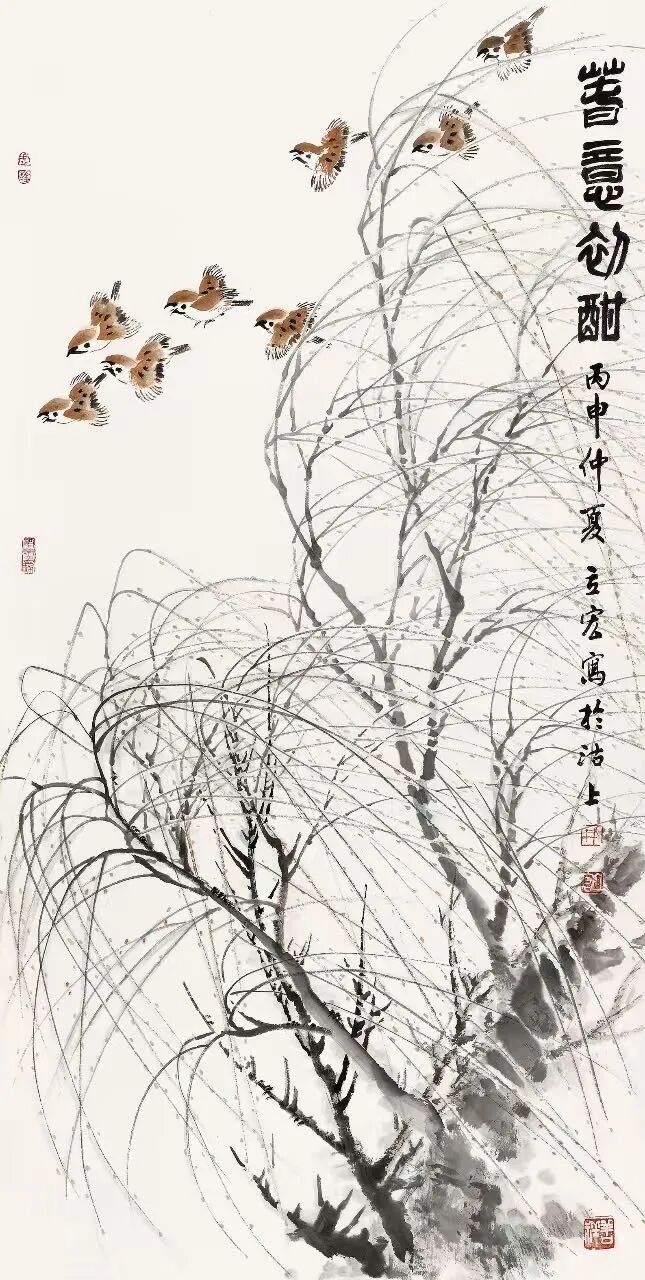 春意初酣 丙申仲夏 立宏寫於沽上